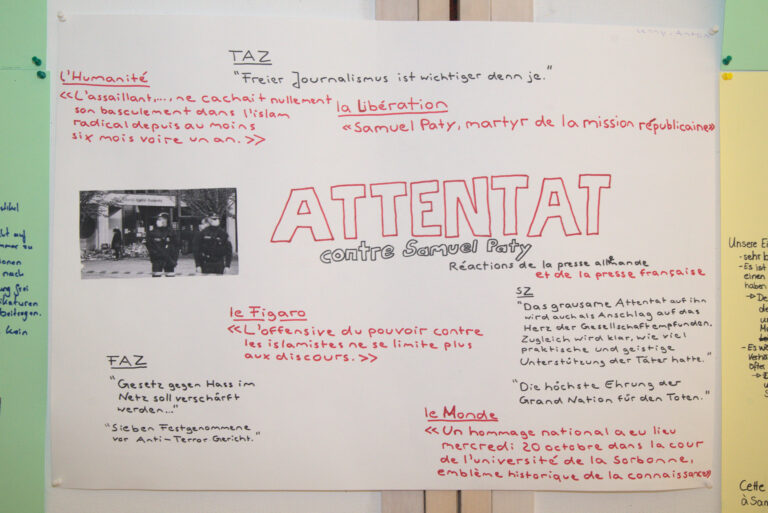 TAZ
"Freier Journalismus ist wichtiger denn je."
L'Humanité
«L'assaillant,..., ne cachait nullement
son basculement dans l'islam
radical depuis au moins
six mois voire un an.»
la Libération
«Samuel Paty, martyr de la mission républicaine»
ATTENTAT
contre Samuel Paty
Réactions de la presse allemande
et de la presse française
SZ
"Das grausame Attentat auf ihn
wird auch als Anschlag auf das
Herz der Gesellschaft empfunden.
Zugleich wird klar, wie viel
praktische und geistige
Unterstützung der Täter hatte."
"Die höchste Ehrung der
Grand Nation für den Toten."
le Figaro
«L'offensive du pouvoir contre
les islamistes ne se limite plus
aux discours.»
FAZ
"Gesetz gegen Hass im
Netz soll verschärft
werden..."
"Sieben Festgenommene
vor Anti-Terror Gericht."
le Monde
«Un hommage national a eu lieu
mercredi 20 octobre dans la cour
de l'université de la Sorbonne,
emblème historique de la connaissance»
Unsere
- sehr
- Es ist
einen
haben
Cette
à Sam
nach
beitragen.
kein